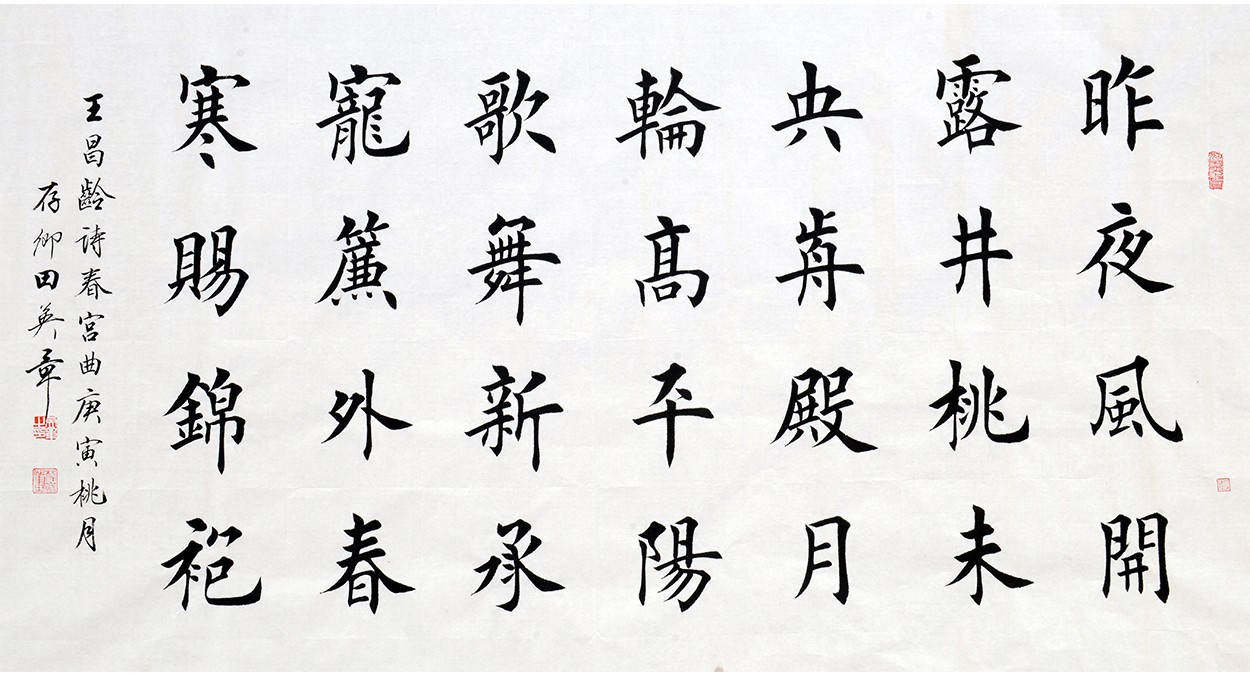 昨夜風開
露井桃未
央歬殿月
輪髙平陽
歌舞新承
寵簾外春
寒賜錦袍
王昌齡詩春宮曲庚寅桃月
存卿田英章